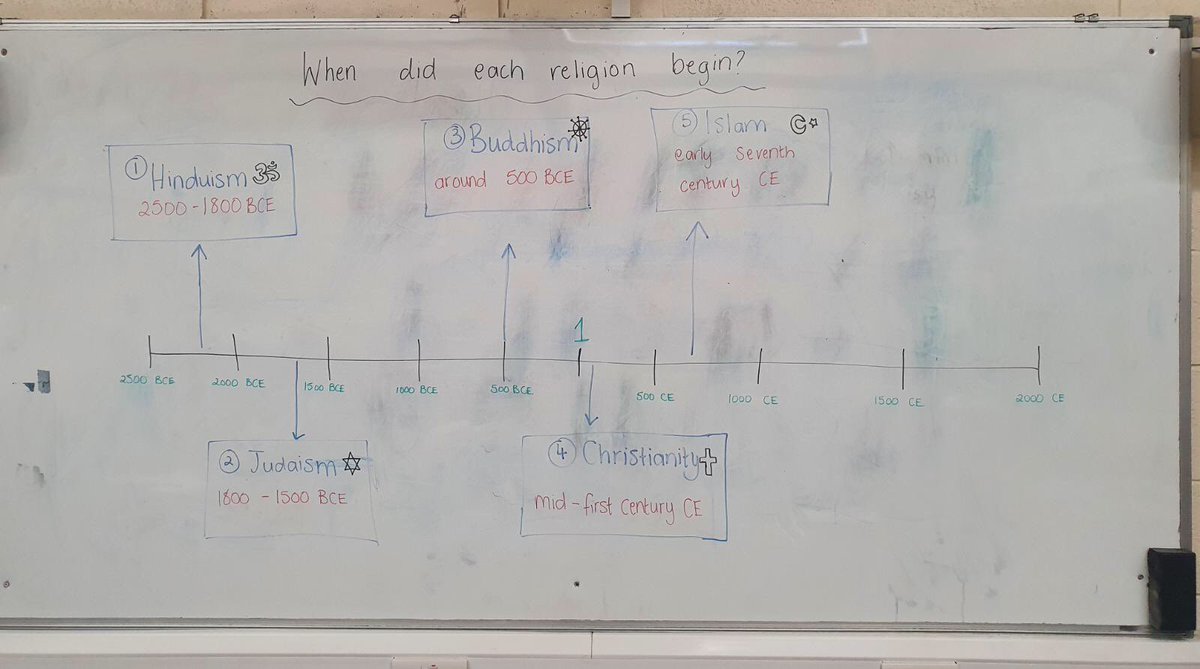 When did each religion begin?
① Hinduism ॐ
2500 - 1800 BCE
③ Buddhism
around 500 BCE
⑤ Islam
early Seventh
century CE
1
2500 BCE
2000 BCE
1500 BCE
1000 BCE
500 BCE
500 CE
1000 CE
1500 CE
2000 CE
② Judaism
1800 - 1500 BCE
④ Christianity
mid-first Century CE